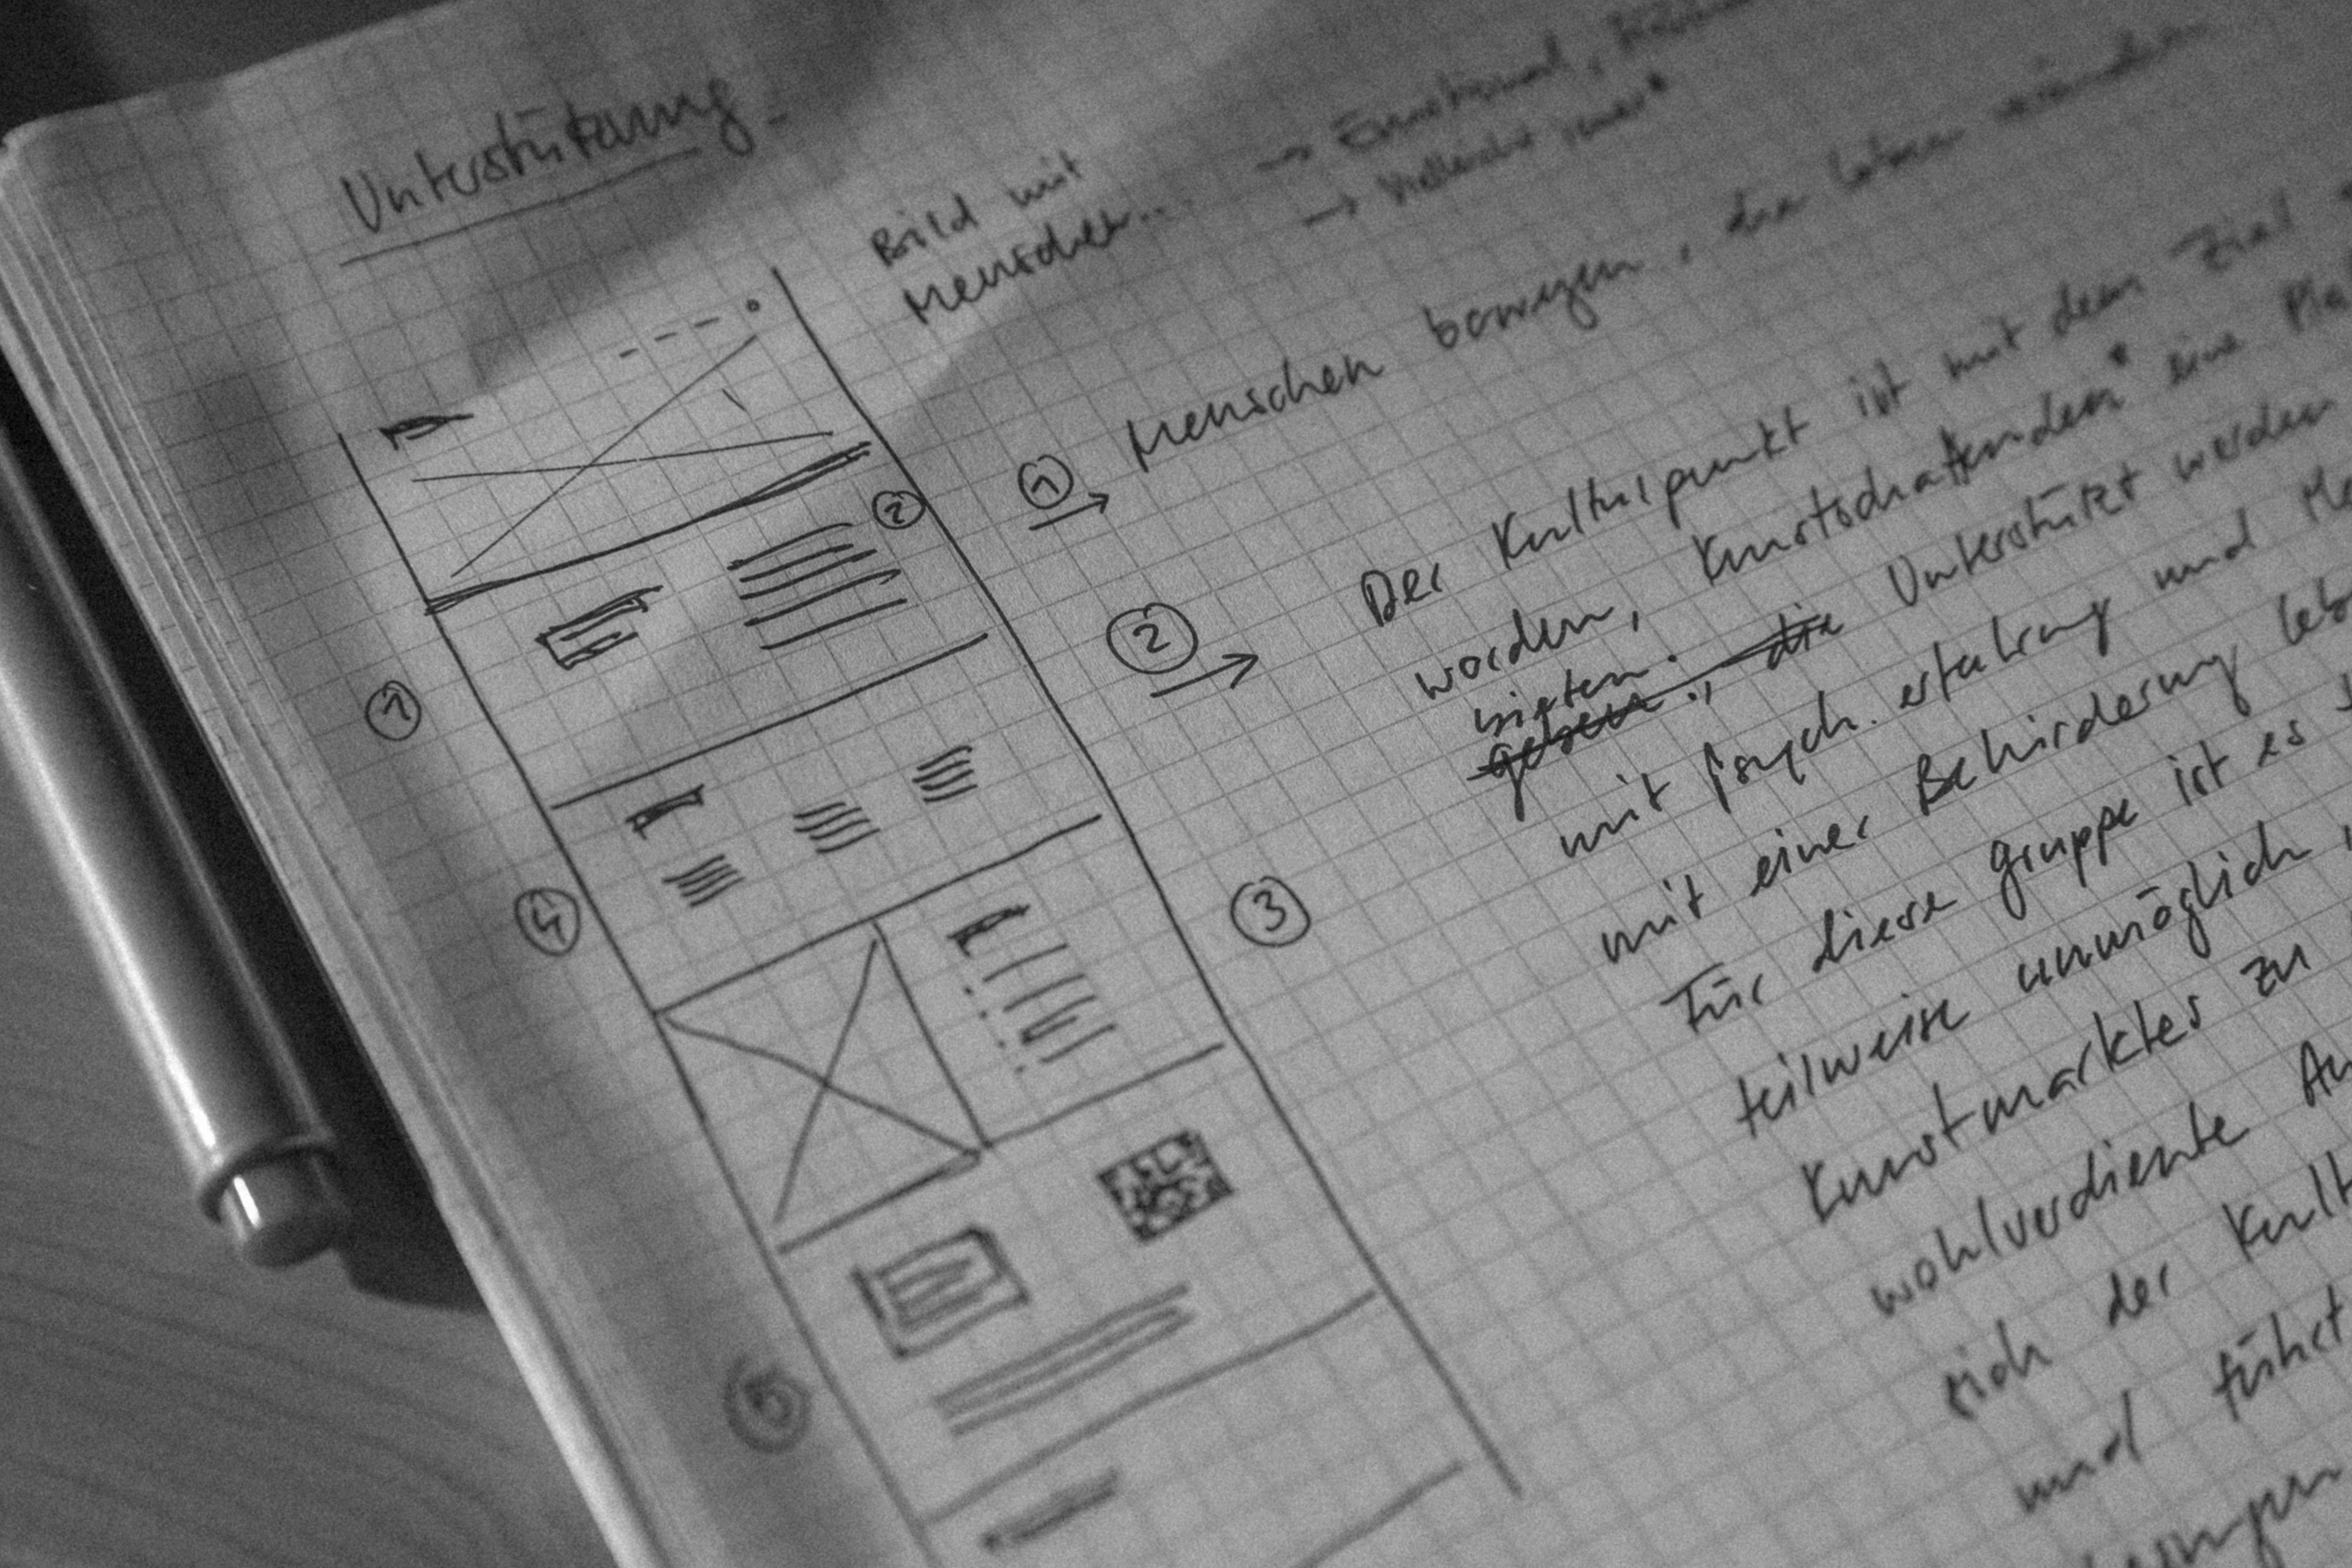 Unterstützung
Bild mit
Menschen...
→ Emotional,
→ Vielleicht
① → Menschen bewegen, die leben
② → Der Kulturpunkt ist mit dem Ziel
worden, Kunstschaffenden* eine
bieten.
geben., die Unterstützt werden
mit psych. erfahrung und
mit einer Behinderung
Für diese gruppe ist es
teilweise unmöglich,
Kunstmarktes zu
wohlverdiente
sich der
und führt
①
②
③
④
⑤